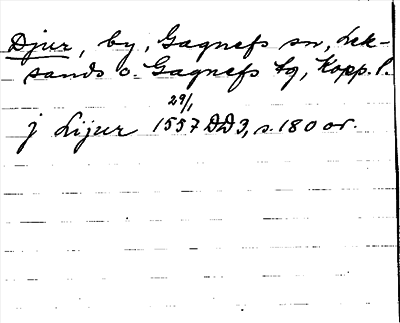 Djur, by, Gagnefs sn, Lek-
sands o. Gagnefs tg, Kopp. l.
29/1
j Lijur 1557 DD3, s. 180 or.